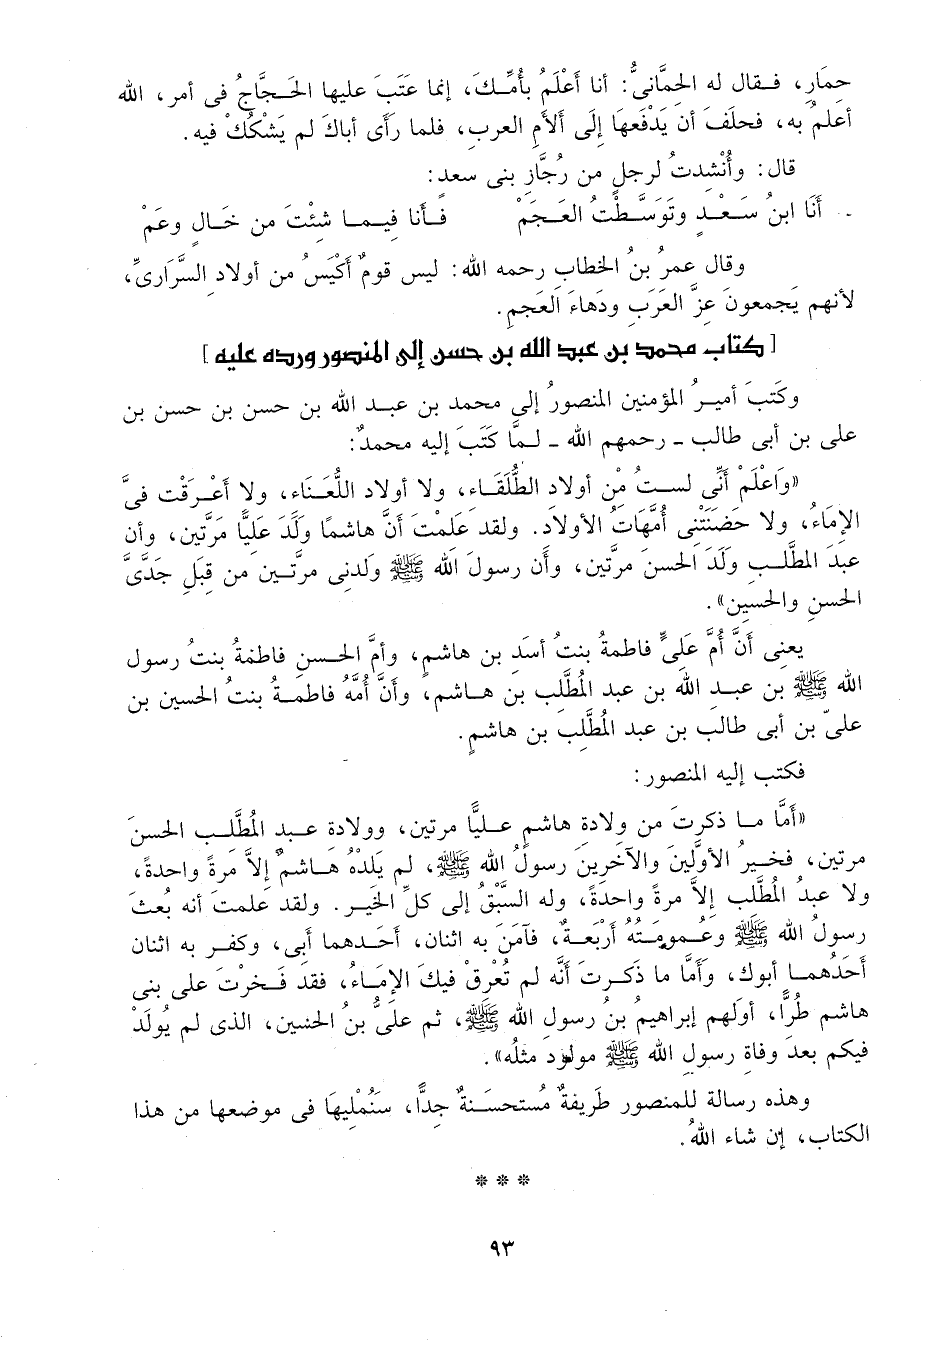 حمارٍ، فـقال له الحِمَّانىُّ: أنا أَعْلَمُ بأُمِّـكَ، إنما عَتَبَ عليها الحَـجَّاجُ فى أمر، الله
أعلمُ به، فحلَفَ أن يَدْفَعَهَا إلَى ألأَمِ العربِ، فلما رَأَى أباكَ لم يَشْكُكْ فيه.
قال: وأُنْشدتُ لرجلٍ من رُجَّازِ بنى سعدٍ:
أَنَا ابنُ سَـعْـدٍ وتَوَسَّطْتُ العَـجَمْ فَـأنا فيـمـا شئْتَ من خَـال وعَمْ
وقال عمرُ بنُ الخطابِ رحمه الله: ليس قومٌ أَكْيَسُ من أولاد السَّرَارىِّ،
لأنهم يَجمعونَ عزَّ العَرَبِ ودَهاءَ العَجمِ.
[ كتاب محمد بن عبد الله بن حسن إلى المنصور ورده عليه ]
وكَتبَ أميـرُ المؤمنين المنصورُ إلى محمد بن عبـد الله بن حسن بن حسن بن
على بن أبى طالب ـ رحمهم الله ـ لـمَّا كَتَبَ إليه محمدٌ:
«وَاعْلَمْ أنِّى لسـتُ مْن أولاد الطُّلَقَـاء، ولا أولاد اللُّعَـنَاء، ولا أعْـرَقَتْ فىَّ
الإمَاءُ، ولا حَضَنَتْنى أُمَّهَاتُ الأولاد. ولقد عَلمْتَ أنَّ هاشمًا وَلَدَ عَليًا مَرَّتين، وأن
عبدَ المطَّلـبِ ولَدَ الحسنَ مرتَّين، وأَن رسولَ الله ﷺ ولَدنِى مرتَّـين من قبَلِ جَدَّىَّ
الحسنِ والحسينِ».
يعنى أنَّ أُمَّ عَلىٍّ فاطمةُ بنتُ أسَدِ بن هاشمٍ، وأمَّ الحـسنِ فاطمَةُ بنتُ رسول
الله ﷺ بن عبـد الله بن عبد المُطَّلب بن هـاشم، وأنَّ أُمَّهُ فاطمـةُ بنتُ الحسين بن
علىّ بن أبى طالب بن عبد المُطَّلب بن هاشمٍ.
فكتب إليه المنصور:
«أَمَّا مـا ذكرتَ من ولادة هاشم عـليًّا مرتين، وولادة عبـد المُطَّلـب الحسنَ
مرتين، فخـيرُ الأولَّينَ والآخرينَ رسولُ الله ﷺ، لم يَلدْهُ هـاشمٌ إلاَّ مرةً واحدةً،
ولا عبدُ المُطَّلب إلاَّ مرةً واحدَةً، وله السَّبْقُ إلى كلِّ الخَيرِ. ولقد علمتَ أنه بُعثَ
رسولُ الله ﷺ وعُـمومـتُهُ أرْبعـةٌ، فآمَنَ به اثنان، أحَـدهما أبى، وكفـر به اثنان
أحَدُهمـا أبوك، وَأَمَّا ما ذَكـرتَ أنَّه لم تُعْرِقْ فيكَ الإمَـاءُ، فقدْ فَـخرْتَ على بنى
هاشم طُرًّا، أولَهم إبراهيمُ بنُ رسولِ الله ﷺ، ثم علىُّ بنُ الحسَين، الذى لم يُولَدْ
فيكم بعدَ وفاةِ رسولِ الله ﷺ مولودٌ مثلُه».
وهذه رسالة للمنصور طَريفةٌ مُستحسَـنةٌ جدًّا، سَنُمْليهَا فى موضعها من هذا
الكتاب، إن شاء اللهُ.
* * *
٩٣